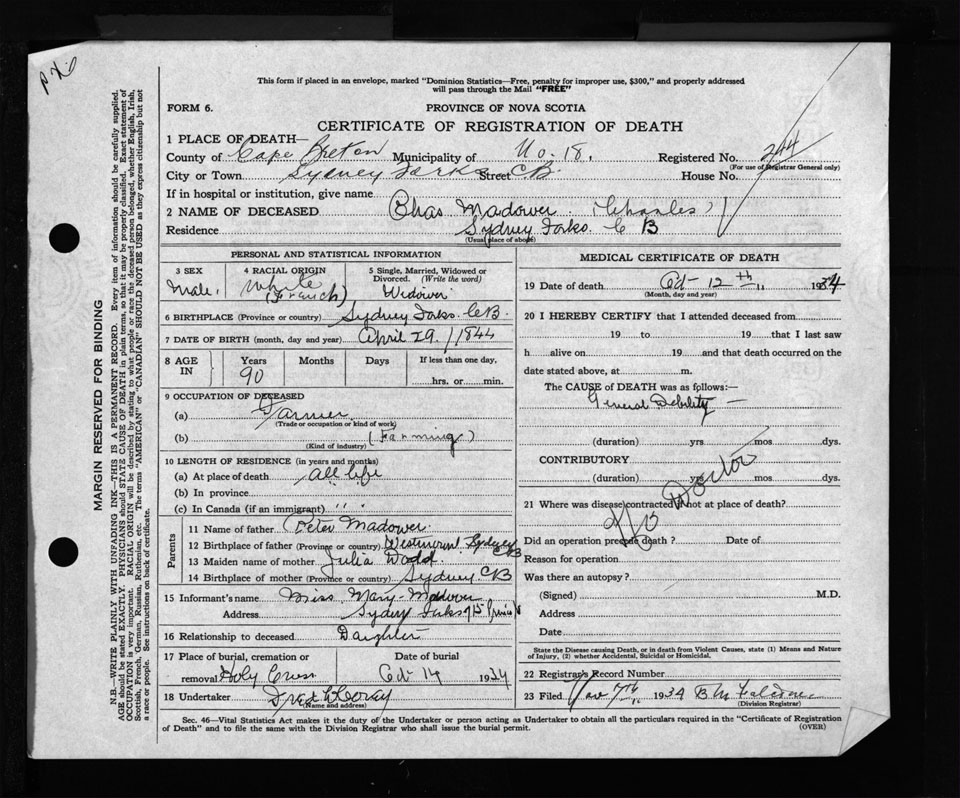 This form if placed in an envelope, marked "Dominion Statistics—Free, penalty for improper use, $300," and properly addressed
will pass through the Mail "FREE"
FORM 6.
PROVINCE OF NOVA SCOTIA
CERTIFICATE OF REGISTRATION OF DEATH
1 PLACE OF DEATH—
County of Cape Breton Municipality of No. 18. Registered No. 244
(For use of Registrar General only)
City or Town Sydney Forks Street CB House No.
If in hospital or institution, give name
2 NAME OF DECEASED Chas Madower (Charles)
Residence Sydney Forks. C B
(Usual place of abode)
PERSONAL AND STATISTICAL INFORMATION
3 SEX
Male.
4 RACIAL ORIGIN
White
(French)
5 Single, Married, Widowed or
Divorced. (Write the word)
Widower
6 BIRTHPLACE (Province or country) Sydney Forks. CB.
7 DATE OF BIRTH (month, day and year) April 29, 1844
8 AGE IN
Years 90
Months
Days
If less than one day,
hrs. or min.
9 OCCUPATION OF DECEASED
(a) Farmer
(Trade or occupation or kind of work)
(b) (Farming)
(Kind of industry)
10 LENGTH OF RESIDENCE (in years and months)
(a) At place of death all life
(b) In province
(c) In Canada (if an immigrant) " "
Parents
11 Name of father Peter Madower.
12 Birthplace of father (Province or country) Sydney CB
13 Maiden name of mother Julia
14 Birthplace of mother (Province or country) Sydney CB
15 Informant's name Miss Mary Madower
Address Sydney Forks
16 Relationship to deceased Daughter
17 Place of burial, cremation or
removal Holy Cross
Date of burial
Oct 14 1934
18 Undertaker
(Name and address)
MEDICAL CERTIFICATE OF DEATH
19 Date of death Oct 12th 1934
(Month, day and year)
20 I HEREBY CERTIFY that I attended deceased from
19 to 19 that I last saw
h alive on 19 and that death occurred on the
date stated above, at m.
The CAUSE of DEATH was as follows:—
General Debility
(duration) yrs mos dys.
CONTRIBUTORY
(duration) yrs mos dys.
21 Where was disease contracted if not at place of death?
No Doctor
Did an operation precede death? Date of
Reason for operation
Was there an autopsy?
(Signed) M.D.
Address
Date
State the Disease causing Death, or in death from Violent Causes, state (1) Means and Nature
of Injury, (2) whether Accidental, Suicidal or Homicidal.
22 Registrar's Record Number
23 Filed Nov 7th 1934 B M
(Division Registrar)
Sec. 46—Vital Statistics Act makes it the duty of the Undertaker or person acting as Undertaker to obtain all the particulars required in the "Certificate of Registration
of Death" and to file the same with the Division Registrar who shall issue the burial permit.
(OVER)
MARGIN RESERVED FOR BINDING
N.B.—WRITE PLAINLY WITH UNFADING INK—THIS IS A PERMANENT RECORD. Every item of information should be carefully supplied.
AGE should be stated EXACTLY. PHYSICIANS should STATE CAUSE OF DEATH in plain terms, so that it may be properly classified. Exact statement of
OCCUPATION is very important. RACIAL ORIGIN will be described by stating to what people or race the deceased person belonged, whether English, Irish,
Scottish, French, German, Russian, Ruthenian, etc. The terms "AMERICAN" or "CANADIAN" SHOULD NOT BE USED as they express citizenship but not
a race or people. See instructions on back of certificate.